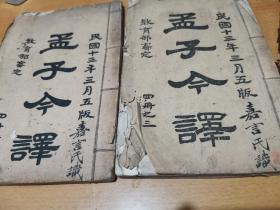 民國十三年三月五版
孟子今譯
教育部審定
嘉言氏識
民國十三年三月五版
孟子今譯
教育部審定
四冊之三
嘉言氏識